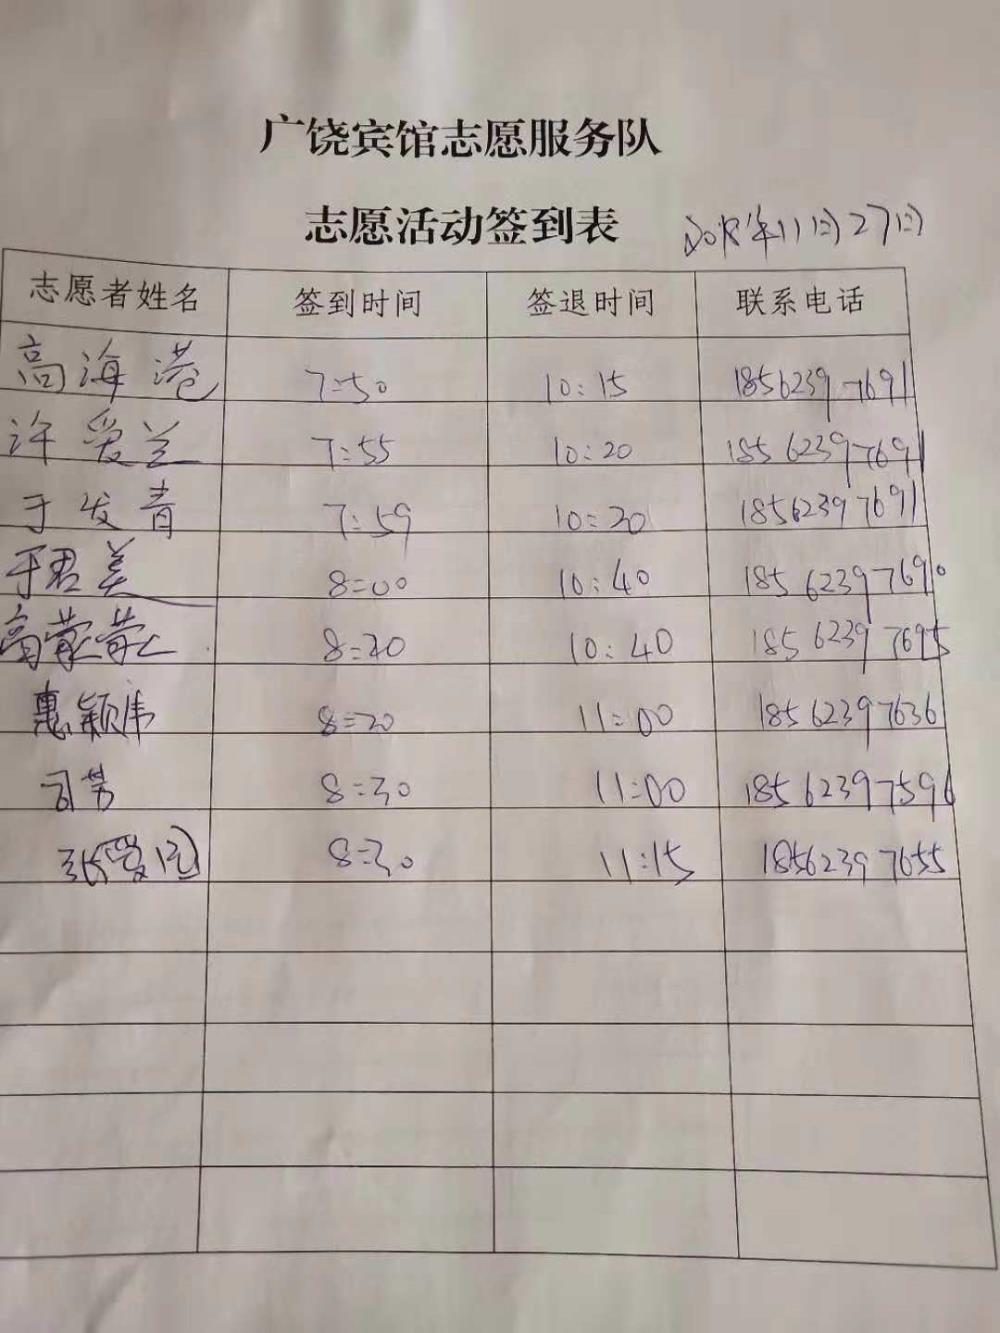 广饶宾馆志愿服务队
志愿活动签到表 2018年11月27日
志愿者姓名 签到时间 签退时间 联系电话
高海港 7:50 10:15 18562397691
许爱兰 7:55 10:20 18562397691
于发青 7:59 10:20 18562397691
于君美 8:00 10:40 18562397690
高蒙蒙 8:20 10:40 18562397695
惠颖伟 8:20 11:00 18562397636
8:30 11:00 18562397596
张爱 8:30 11:15 18562397655